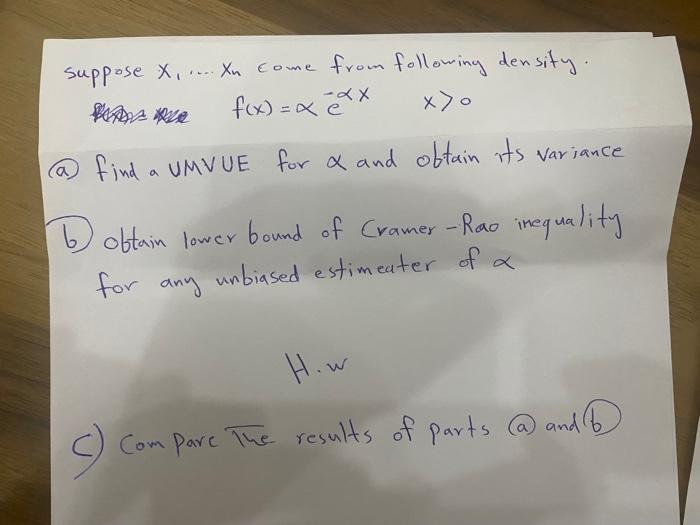 suppose X₁ .... Xn come from following density.
f(x) = α e^{-αx} x>0
ⓐ find a UMVUE for α and obtain its variance
b) obtain lower bound of Cramer-Rao inequality
for any unbiased estimeater of α
H.w
c) Compare The results of parts ⓐ and ⓑ